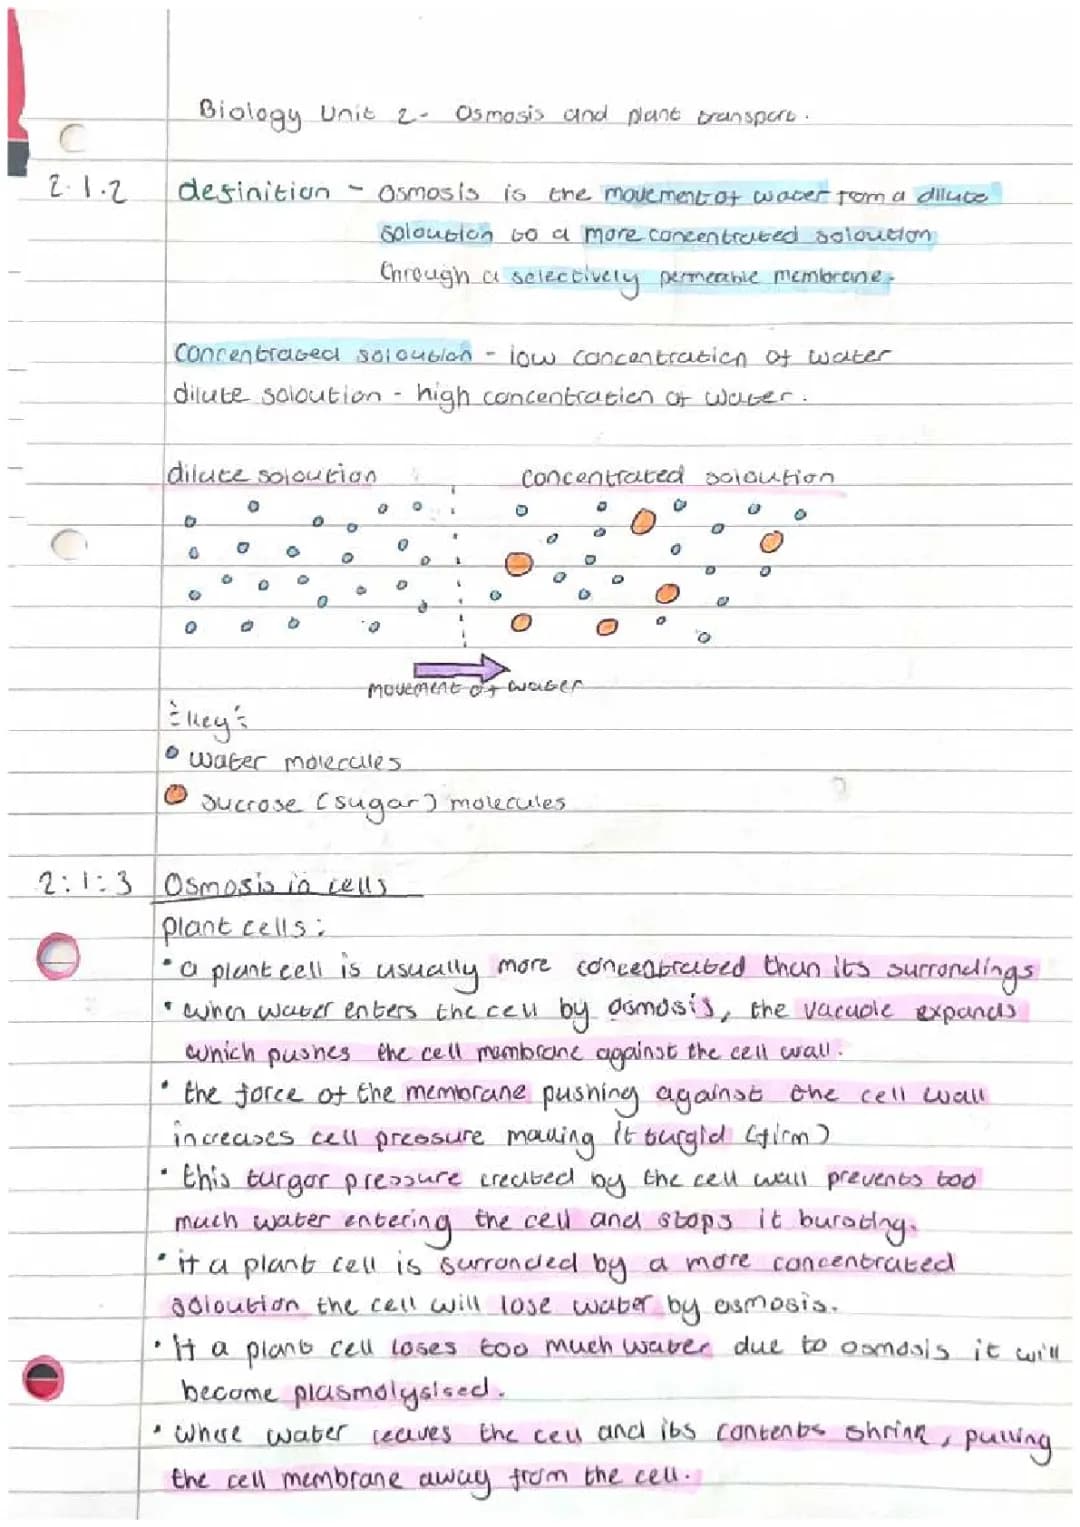 Biology Unit 2- Osmosis and plant transport.
2.1.2 definition - Osmosis is the movement of water from a dilute
soloution to a more concentrated soloution
through a selectively permeable membrane.
Concentrated soloution - low concentration of water
dilute soloution - high concentration of water.
dilute soloution concentrated soloution
movement of water
key:
water molecules
sucrose (sugar) molecules
2:1:3 Osmosis in cells
plant cells:
• a plant cell is usually more concentrated than its surrondings
• when water enters the cell by osmosis, the vacuole expands
which pushes the cell membrane against the cell wall.
• the force of the membrane pushing against the cell wall
increases cell pressure making it turgid (firm)
• this turgor pressure created by the cell wall prevents too
much water entering the cell and stops it bursting.
• if a plant cell is surronded by a more concentrated
soloution the cell will lose water by osmosis.
• If a plant cell loses too much water due to osmosis it will
become plasmolysised.
• whese water leaves the cell and its contents shrink, pulling
the cell membrane away from the cell.